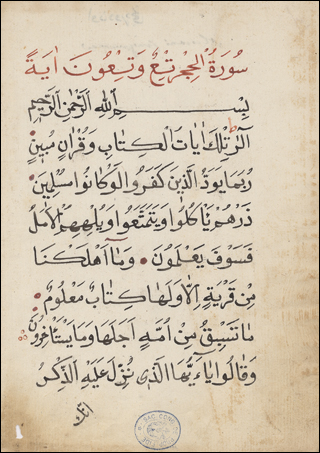 سورة الحجر تسع وتسعون اية
بسم الله الرحمن الرحيم
الر تلك ايات الكتاب وقران مبين
ربما يود الذين كفروا لو كانوا مسلمين
ذرهم ياكلوا ويتمتعوا ويلههم الامل
فسوف يعلمون وما اهلكنا
من قرية الا ولها كتاب معلوم
ما تسبق من امة اجلها وما يستاخرون
وقالوا يا ايها الذي نزل عليه الذكر
انك